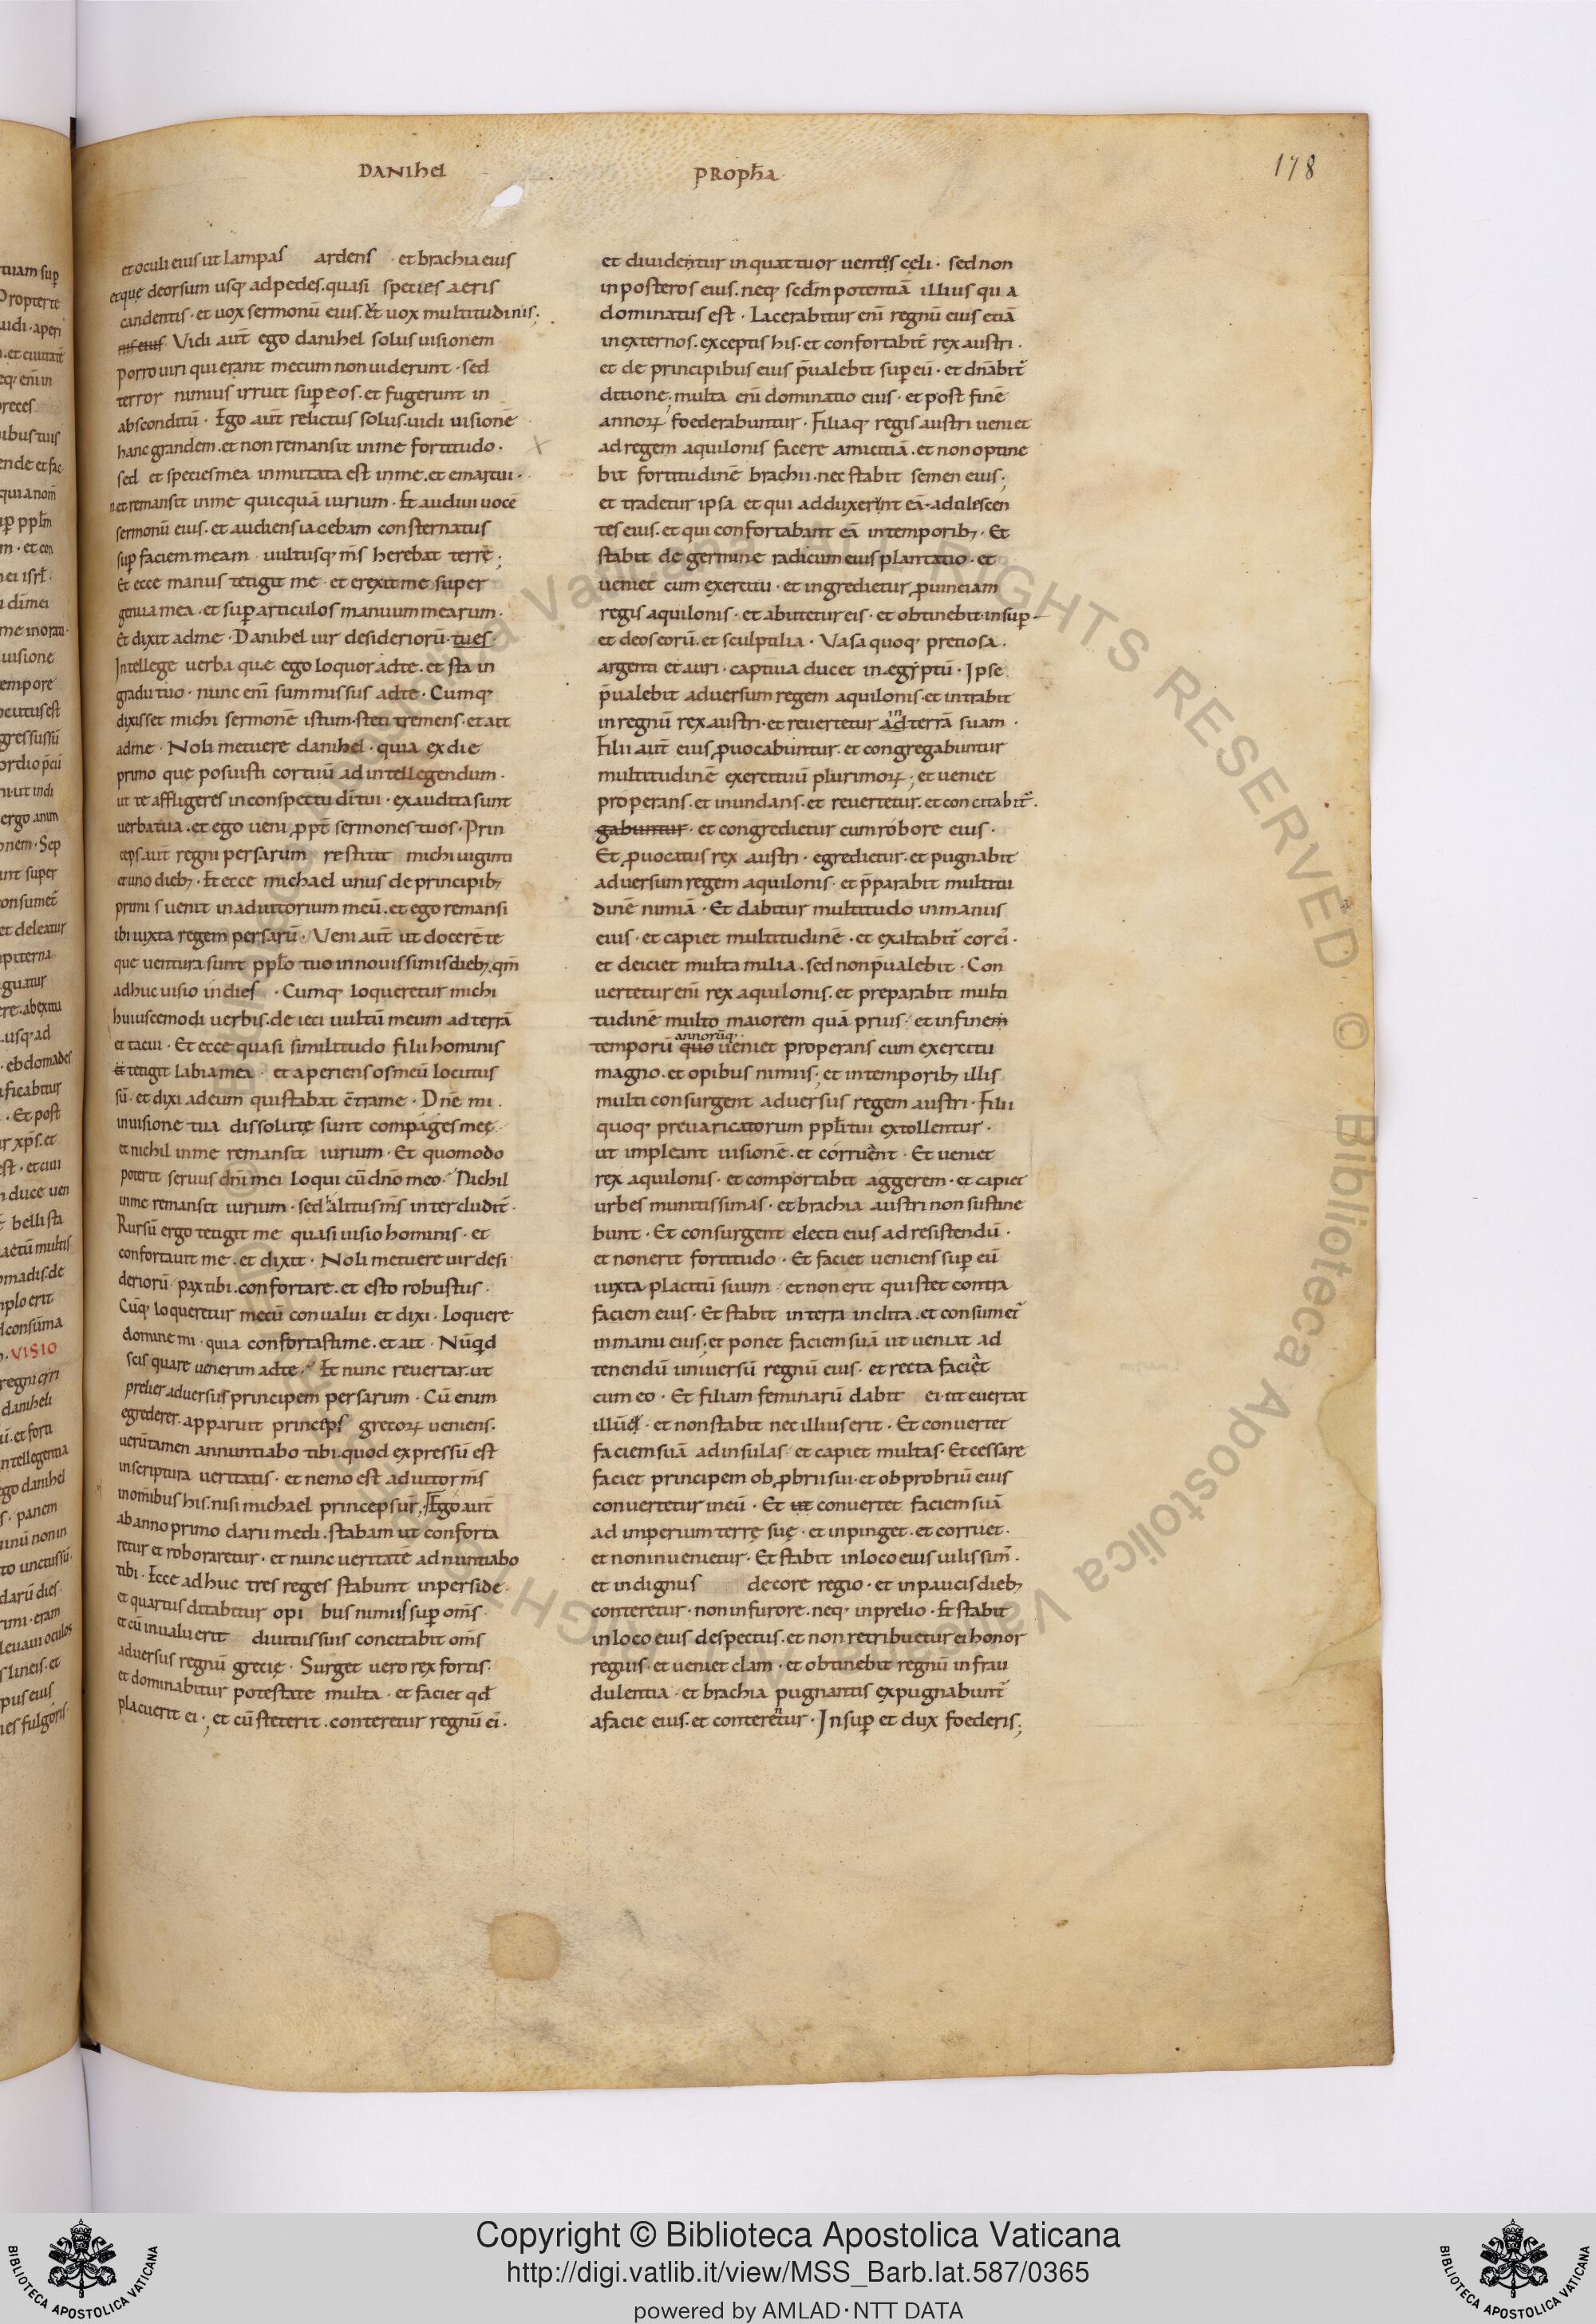 DANIhel PROPħA
178
et oculi eius ut lampas ardens · et brachia eius
etque deorsum usq; ad pedes. quasi species aeris
candentis · et uox sermonū eius. ut uox multitudinis;
nis eius Vidi aut̄ ego danihel solus uisionem
porro uiri qui erant mecum non uiderunt · sed
terror nimius irruit sup eos. et fugerunt in
absconditū · Ego aut̄ relictus solus. uidi uisionē
hanc grandem. et non remansit in me fortitudo ·
sed et species mea inmutata est in me. et emarcui ·
n et remansit in me quicquā uirium · Et audiui uocē
sermonū eius. et audiens iacebam consternatus
sup faciem meam uultusq; m̄s herebat terrę;
Et ecce manus tetigit me · et erexit me super
genua mea · et sup articulos manuum mearum ·
Et dixit ad me · Danihel uir desideriorū · tu es ·
Intellege uerba que ego loquor ad te. et sta in
gradu tuo · nunc eni̅ sum missus ad te · Cumq;
dixisset michi sermonē istum. steti tremens. et ait
ad me · Noli metuere danihel · quia ex die
primo que posuisti cor tuū ad intellegendum ·
ut te affligeres in conspectu di̅ tui · exaudita sunt
uerba tua. et ego ueni ꝓpt̄ sermones tuos · Prin
ceps. aut̄ regni persarum restitit michi uiginti
et uno dieb; · Et ecce michael unus de principib;
primis uenit in adiutorium meū. et ego remansi
ibi iuxta regem persarū · Veni aut̄ ut docerē te
que uentura sunt ppl̄o tuo in nouissimis dieb; qm̄
adhuc uisio in dies · Cumq; loqueretur michi
huiuscemodi uerbis. deieci uultū meum ad terrā
et tacui · Et ecce quasi similitudo filii hominis
et tetigit labia mea · et aperiens os meū locutus
sū · et dixi ad eum qui stabat c̄tra me · Dn̄e mi ·
in uisione tua dissolutę sunt compages meę ·
et nichil in me remansit uirium · Et quomodo
poterit seruus dn̄i mei loqui cū dn̄o meo · Nichil
in me remansit uirium · sed halitus m̄s intercludit̄ ·
Rursū ergo tetigit me quasi uisio hominis · et
confortauit me · et dixit · Noli metuere uir desi
deriorū · pax tibi. confortare. et esto robustus ·
Cūq; loqueretur mecū conualui et dixi · Loquere
domine mi · quia confortasti me · et ait · Nūqd
scis quare uenerim ad te · Et nunc reuertar. ut
prelier aduersus principem persarum · Cū enim
egrederer. apparuit princeps grecoꝝ ueniens ·
uerūtamen annuntiabo tibi. quod expressū est
in scriptura ueritatis · et nemo est adiutor m̄s
in om̄ibus his. nisi michael princeps ur̄; Ego aut̄
ab anno primo darii medi. stabam ut conforta
retur et roboraretur · et nunc ueritatē adnuntiabo
tibi · Ecce adhuc tres reges stabunt in perside ·
et quartus ditabitur opi bus nimiis sup om̄s ·
et cū inualuerit diuitiis suis concitabit om̄s
aduersus regnū grecię · Surget uero rex fortis ·
et dominabitur potestate multa · et faciet qd̄
placuerit ei ·; et cū steterit. conteretur regnū ei̅ ·
et diuidentur in quattuor uentis cęli · sed non
in posteros eius. neq; scd̄m potentiā illius qu a
dominatus est · Lacerabitur eni̅ regnū eius etiā
in externos. exceptis his. et confortabit̄ rex austri ·
et de principibus eius p̄ualebit sup eū · et dn̄abit̄
ditione; multa eni̅ dominatio eius · et post finē
annoꝝ foederabuntur · Filiaq; regis austri ueniet
ad regem aquilonis facere amicitiā. et non optine
bit fortitudinē brachii · nec stabit semen eius;
et tradetur ipsa et qui adduxerunt eā · adulescen
tes eius. et qui confortabant eā in temporib; · Et
stabit de germine radicum eius plantatio · et
ueniet cum exercitu · et ingredietur ꝓuinciam
regis aquilonis · et abutetur eis · et obtinebit · insup
et deos eorū. et sculptilia · Vasa quoq; pretiosa ·
argenti et auri · captiua ducet in ęgyptū · Ipse
p̄ualebit aduersum regem aquilonis. et intrabit
in regnū rex austri · et reuertetur in ad terrā suam ·
Filii aut̄ eius ꝓuocabuntur. et congregabuntur
multitudinē exercituū plurimoꝝ; et ueniet
properans. et inundans. et reuertetur. et concitabit̄ ·
gabuntur · et congredietur cum robore eius ·
Et ꝓuocatus rex austri · egredietur. et pugnabit
aduersum regem aquilonis · et p̄parabit multitu
dinē nimiā · Et dabitur multitudo in manus
eius · et capiet multitudinē · et exaltabit̄ cor ei̅ ·
et deiciet multa milia. sed non p̄ualebit · Con
uertetur eni̅ rex aquilonis. et preparabit multi
tudinē multo maiorem quā prius · et in finem
temporū annorūq; quo ueniet properans cum exercitu
magno. et opibus nimiis; et in temporib; illis
multi consurgent aduersus regem austri · Filii
quoq; preuaricatorum ppl̄i tui extollentur ·
ut impleant uisionē. et corruent · Et ueniet
rex aquilonis · et comportabit aggerem · et capiet
urbes munitissimas · et brachia austri non sustine
bunt · Et consurgent electi eius ad resistendū ·
et non erit fortitudo · Et faciet ueniens sup eū
iuxta placitū suum · et non erit qui stet contra
faciem eius · Et stabit in terra inclita. et consumet̄
in manu eius; et ponet faciem suā ut ueniat ad
tenendū uniuersū regnū eius · et recta faciet
cum eo · Et filiam feminarū dabit ei · ut euertat
illud · et non stabit nec illius erit · Et conuertet
faciem suā ad insulas · et capiet multas · Et cessare
faciet principem obꝓbrii sui · et obprobriū eius
conuertetur in eū · Et ut conuertet faciem suā
ad imperium terrę suę · et inpinget. et corruet ·
et non inuenietur · Et stabit in loco eius uilissim̄ ·
et indignus decore regio · et in paucis dieb;
conteretur · non in furore. neq; in prelio · Et stabit
in loco eius despectus. et non retribuetur ei honor
regius · et ueniet clam · et obtinebit regnū in frau
dulentia · et brachia pugnantis expugnabunt̄
a facie eius. et conterentur · Insup et dux foederis;
Copyright © Biblioteca Apostolica Vaticana
http://digi.vatlib.it/view/MSS_Barb.lat.587/0365
powered by AMLAD·NTT DATA
BIBLIOTECA APOSTOLICA VATICANA
BIBLIOTECA APOSTOLICA VATICANA